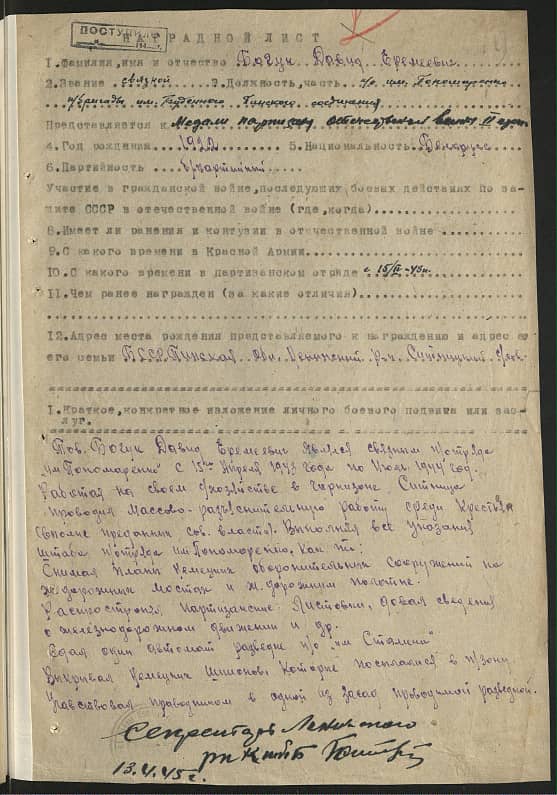 ПОСТУПИЛО
НАГРАДНОЙ ЛИСТ
1.Фамилия,имя и отчество Богук Давид Еремеевич
2.Звание связной 3.Должность,часть п/о им. Пономаренко
п/бригады им. Буденного Пинского соединения
Представляется к Медали партизану отечественной войны II степ.
4.Год рождения 1922 5.Национальность Беларус
6.Партийность б/партийный
Участие в гражданской войне,последующих боевых действиях по за-
щите СССР в отечественной войне (где,когда)
8.Имеет ли ранения и контузии в отечественной войне
9.С какого времени в Красной Армии
10.С какого времени в партизанском отряде с 15/IV-43г.
11.Чем ранее награжден (за какие отличия)
12.Адрес места рождения представляемого к награждению и адрес
его семьи БССР, Пинская обл. Ленинский р-н. Ситницкий с/сов-
1.Краткое,конкретное изложение личного боевого подвига или зас-
луг.
Тов. Богук Давид Еремеевич являлся связным п/отряда
им Пономаренко с 15го Апреля 1943 года по Июль 1944 год.
Работая на своем с/хозяйстве в гарнизоне Ситница
проводил массово-разъяснительную работу среди крестьян
вполне преданных сов. власти. Выполнял все указания
штаба п/отряда им Пономаренко, как то:
Снимал планы немецких оборонительных сооружений на
ж/дорожных мостах и ж. дорожном полотне.
Распространял партизанские листовки, давал сведения
о железнодорожном движении и др.
Сдал один автомат разведке п/о "им Сталина"
Вскрывал немецких шпионов, которые посылались в п/зону
Учавствовал проводником в одной из засад проводимой разведкой.
Секретарь Ленинского
рк КП(б)Б
13.VI.45г.